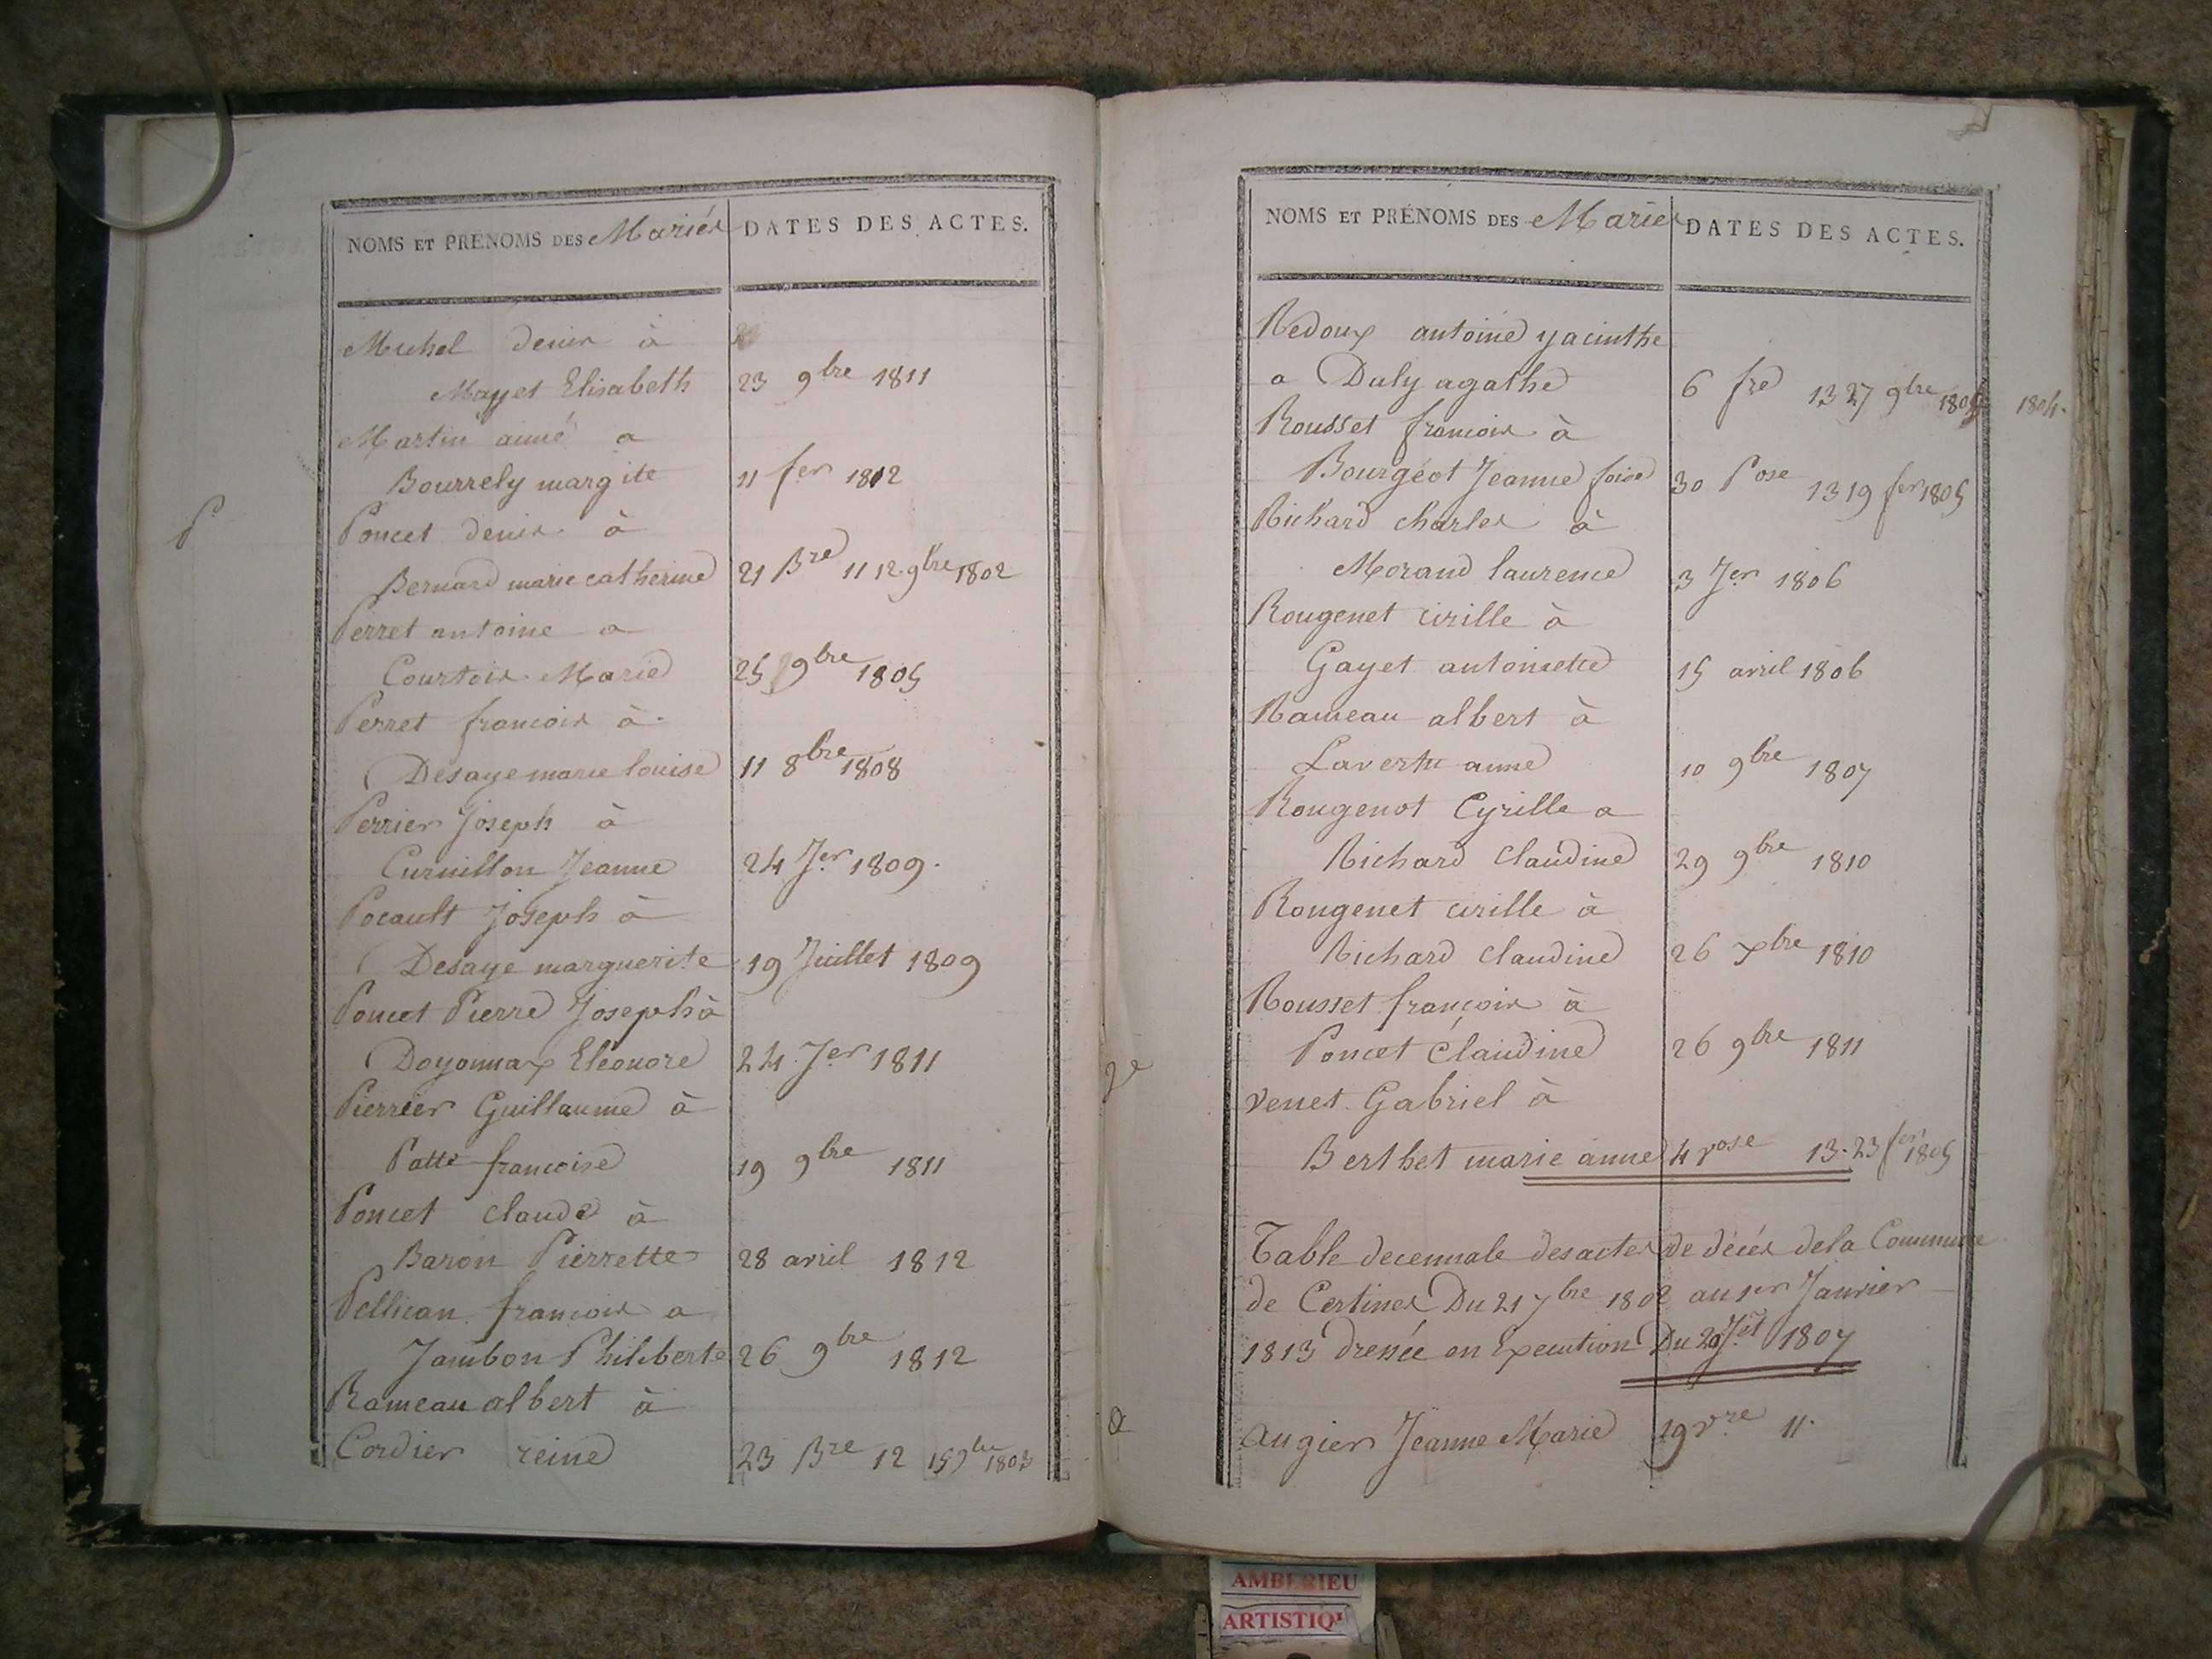 NOMS ET PRENOMS DES Mariés DATES DES ACTES.
Michel denis à
Mayet Elisabeth 23 9bre 1811
Martin aimé a
Bourrely margite 11 fer 1812
P
Poncet denis à
Bernard marie catherine 21 Bre 11 12 9bre 1802
Perret antoine a
Courtois Marie 25 9bre 1805
Perret francois à
Desaye marie louise 11 8bre 1808
Perrier Joseph à
Curnillon Jeanne 24 Jer 1809.
Pocault Joseph à
Desaye marguerite 19 Juillet 1809
Poncet Pierre Joseph à
Doyonnax Eléonore 24 Jer 1811
Pierrier Guillaume à
Patte francoise 19 9bre 1811
Poncet claude à
Baron Pierrette 28 avril 1812
Pellican francois a
Jambon Philiberte 26 9bre 1812
Rameau albert à
Cordier reine 23 Bre 12 15 9bre 1803
NOMS ET PRÉNOMS DES Mariés DATES DES ACTES.
Redoux antoine yacinthe
a Daly agathe 6 fre 13 27 9bre 1804 1804.
Rousset francois à
Bourgeot Jeanne foise 30 Pose 13 19 fer 1805
Richard charles à
Morand laurence 3 Jer 1806
Rougenet cirille à
Gayet antoinette 15 avril 1806
Rameau albert à
Lavertu anne 10 9bre 1807
Rougenot Cyrille a
Richard Claudine 29 9bre 1810
Rougenet cirille à
Richard claudine 26 xbre 1810
Rousset françois à
Poncet Claudine 26 9bre 1811
Venet Gabriel à
Berthet marie anne 4 vose 13. 23 fer 1805
Table decennale des actes de décés de la Commune
de Certines Du 21 7bre 1802 au 1er Janvier
1813 dressée en Execution Du 20 Jet 1807
a
augier Jeanne Marie 19 vre 11.
AMBERIEU
ARTISTIQ